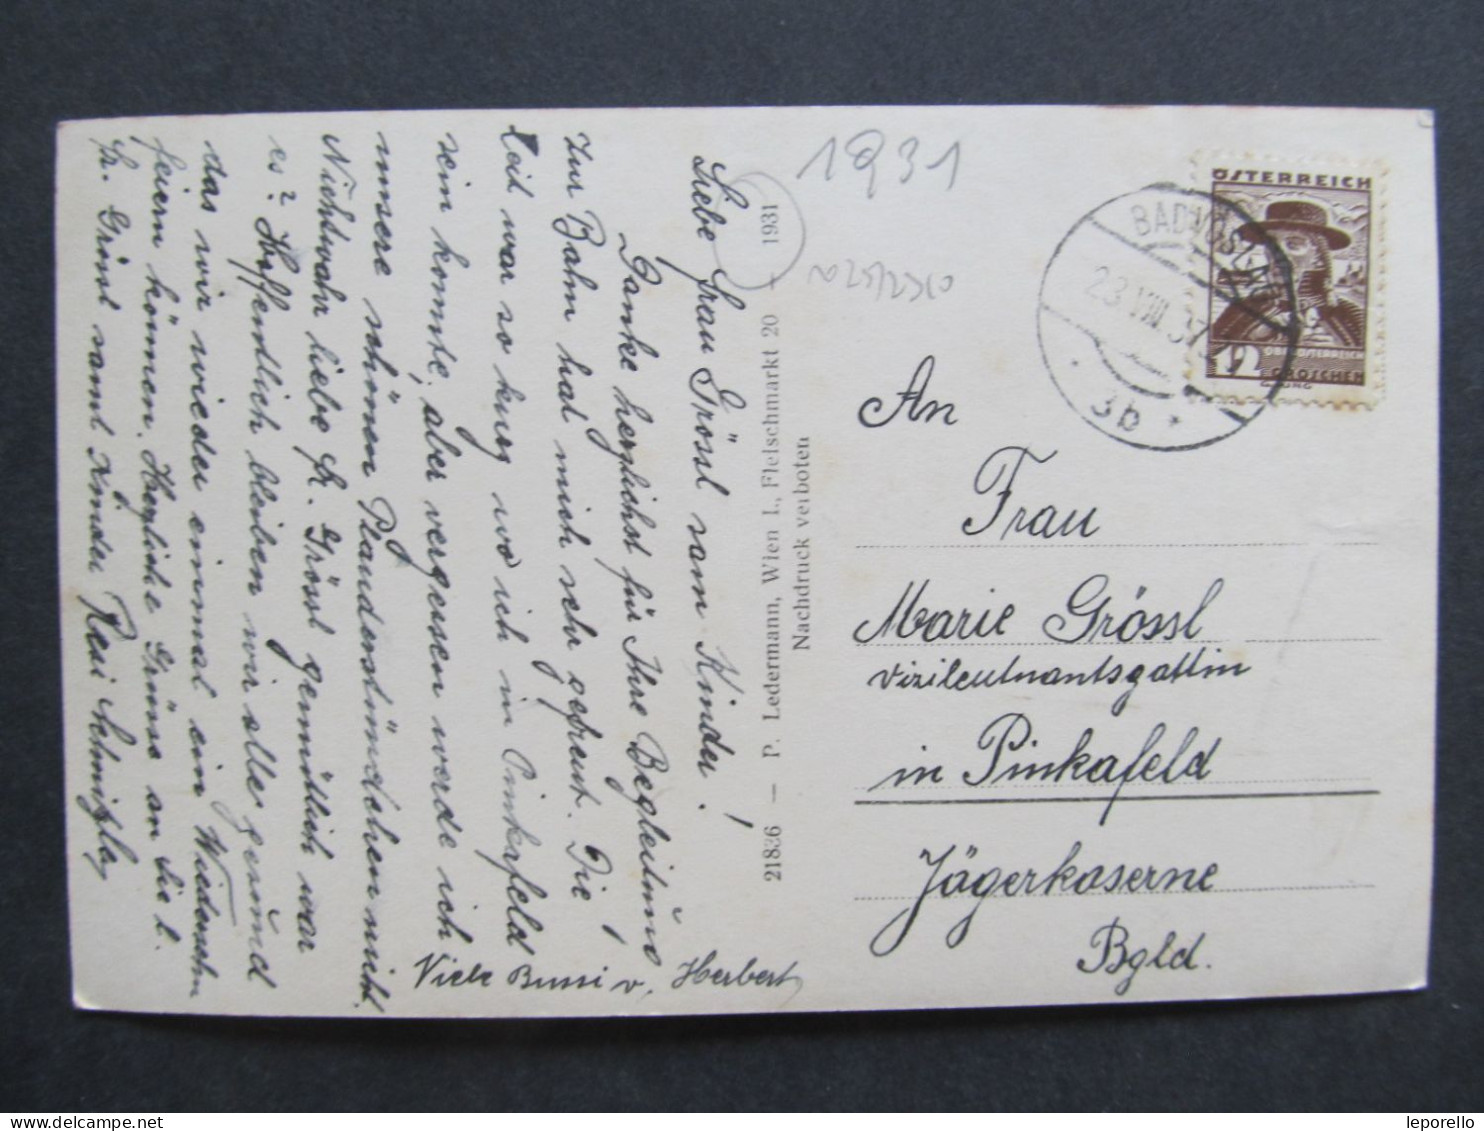 Liebe Frau Grössl sam Kinder!
Danke herzlichst für Ihre Begleitung
zur Bahn hat mich sehr gefreut. Die
Zeit war so kurz wo ich in Pinkafeld
sein konnte, aber vergessen werde ich
unsere schönen Plauderstündchen nicht.
Nichtwahr liebe Fr. Grössl gemütlich war
es? Hoffentlich bleiben wir alle gesund
das wir wieder einmal ein Wiedersehn
feiern können. Herzliche Grüsse an Sie l.
Fr. Grössl samt Kinder Resi
Viele Bussi v. Herbert
21836 — P. Ledermann, Wien I., Fleischmarkt 20 + 1931
Nachdruck verboten
1931
ÖSTERREICH
12
OBERÖSTERREICH
GROSCHEN
BAD VÖSLAU
23.VIII.37
3b
An
Frau
Marie Grössl
Vizileutnantsgattin
in Pinkafeld
Jägerkaserne
Bgld.
leporello